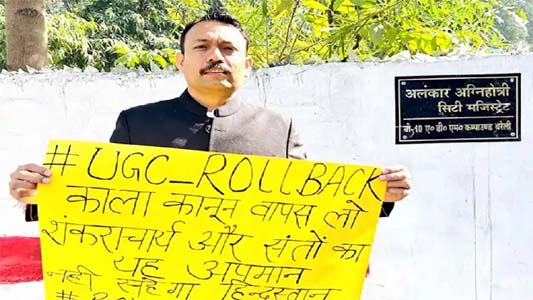 अलंकार अग्निहोत्री
सिटी मजिस्ट्रेट
बी-10 ए०डी०एम० कम्पाउण्ड बरेली
# UGC_ROLLBACK
काला कानून वापस लो
शंकराचार्य और संतों का
यह अपमान
नहीं सहेगा हिन्दुस्तान